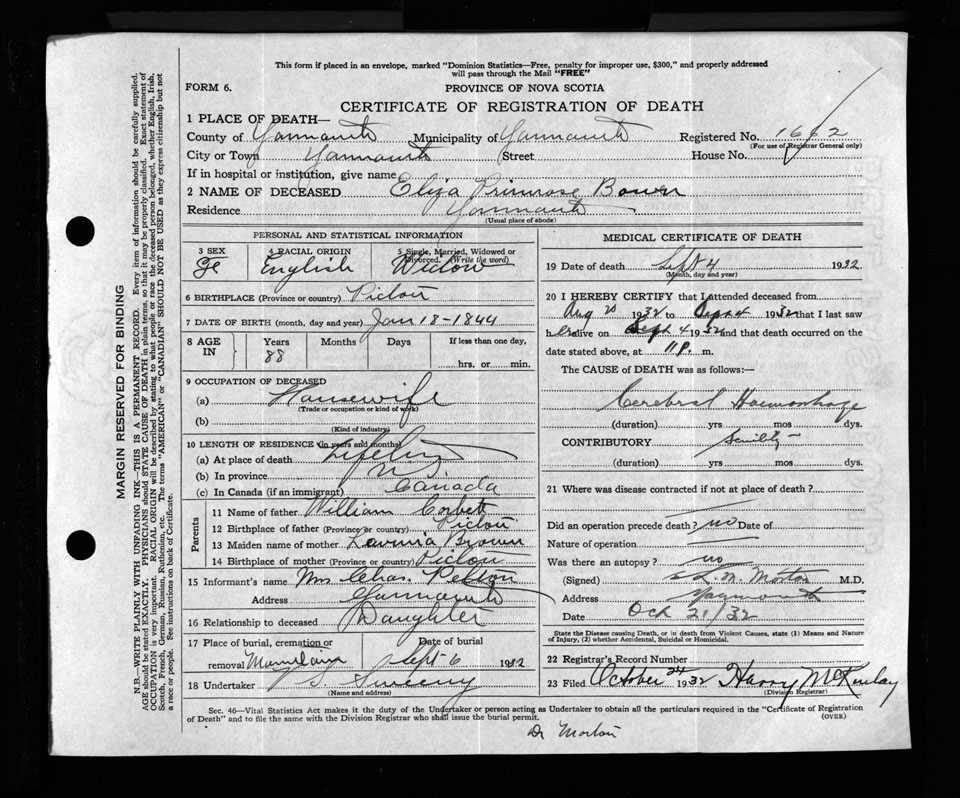 This form if placed in an envelope, marked "Dominion Statistics—Free, penalty for improper use, $300," and properly addressed
will pass through the Mail "FREE"
FORM 6. PROVINCE OF NOVA SCOTIA
CERTIFICATE OF REGISTRATION OF DEATH
1 PLACE OF DEATH—
County of Yarmouth Municipality of Yarmouth Registered No. 1662
(For use of Registrar General only)
City or Town Yarmouth Street House No.
If in hospital or institution, give name
2 NAME OF DECEASED Eliza Primrose Bower
Residence Yarmouth
(Usual place of abode)
PERSONAL AND STATISTICAL INFORMATION
3 SEX 4 RACIAL ORIGIN 5 Single, Married, Widowed or
Divorced. (Write the word)
Fe English Widow
6 BIRTHPLACE (Province or country) Pictou
7 DATE OF BIRTH (month, day and year) Jan 18-1844
8 AGE IN Years Months Days If less than one day,
88 hrs. or min.
9 OCCUPATION OF DECEASED
(a) Housewife
(Trade or occupation or kind of work)
(b)
(Kind of industry)
10 LENGTH OF RESIDENCE (in years and months)
(a) At place of death Lifetime
(b) In province
(c) In Canada (if an immigrant) Canada
Parents
11 Name of father William Corbett
12 Birthplace of father (Province or country) Pictou
13 Maiden name of mother Lavinia Brown
14 Birthplace of mother (Province or country) Pictou
15 Informant's name Mrs Chas. Pelton
Address Yarmouth
16 Relationship to deceased Daughter
17 Place of burial, cremation or Date of burial
removal Sept 6 1932
18 Undertaker V S Sweeny
(Name and address)
MEDICAL CERTIFICATE OF DEATH
19 Date of death Sept 4 1932
(Month, day and year)
20 I HEREBY CERTIFY that I attended deceased from
Aug 20 1932 to Sept 4 1932 that I last saw
her alive on Sept 4 1932 and that death occurred on the
date stated above, at 11 p. m.
The CAUSE of DEATH was as follows:—
Cerebral Haemorrhage
(duration) yrs mos dys.
CONTRIBUTORY Senility
(duration) yrs. mos dys.
21 Where was disease contracted if not at place of death?
Did an operation precede death? no Date of
Nature of operation
Was there an autopsy? no
(Signed) L. M. Morton M.D.
Address Yarmouth
Date Oct 21/32
State the Disease causing Death, or in death from Violent Causes, state (1) Means and Nature
of Injury, (2) whether Accidental, Suicidal or Homicidal.
22 Registrar's Record Number
23 Filed October 24 1932 Harry McKinlay
(Division Registrar)
Sec. 46—Vital Statistics Act makes it the duty of the Undertaker or person acting as Undertaker to obtain all the particulars required in the "Certificate of Registration
of Death" and to file the same with the Division Registrar who shall issue the burial permit. (OVER)
Dr Morton
MARGIN RESERVED FOR BINDING
N.B.—WRITE PLAINLY WITH UNFADING INK—THIS IS A PERMANENT RECORD. Every item of information should be carefully supplied.
AGE should be stated EXACTLY. PHYSICIANS should STATE CAUSE OF DEATH in plain terms, so that it may be properly classified. Exact statement of
OCCUPATION is very important. RACIAL ORIGIN will be described by stating to what people or race the deceased person belonged, whether English, Irish,
Scotch, French, German, Russian, Ruthenian, etc. The terms "AMERICAN" or "CANADIAN" SHOULD NOT BE USED as they express citizenship but not
a race or people. See instructions on back of Certificate.